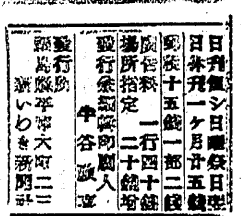 日刊但シ日曜祭日翌
日休刊一ケ月廿五銭
郵税十五銭一部二銭
広告料 一行四十銭
場所指定 二十銭増
発行兼編輯印刷人
牛谷
発行所
平町大町二三
新いわき新聞社